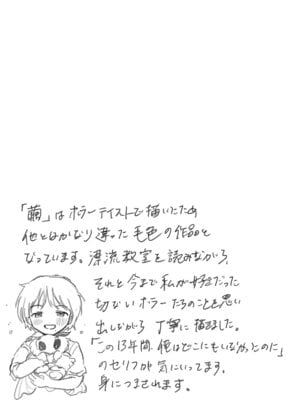 「繭」はホラーテイストで描いたため
他とはかなり違った毛色の作品と
なっています。漂流教室を読みながら、
それと今まで私が好きだった
切ないホラーたちのことを思い
出しながら丁寧に描きました。
「この13年間、俺はどこにもいなかったのに」
のセリフが気にいってます。
身につまされます。